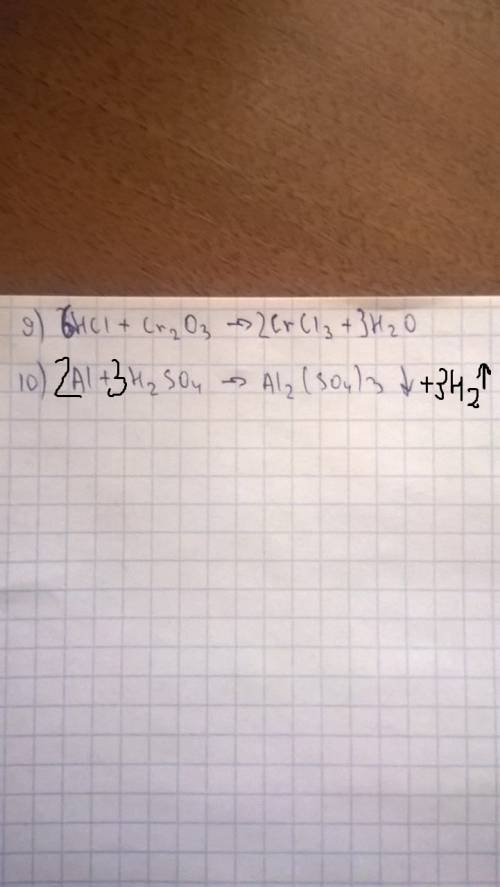 9) 6HCl + Cr₂O₃ → 2CrCl₃ + 3H₂O
10) 2Al + 3H₂SO₄ → Al₂(SO₄)₃ ↓ + 3H₂↑